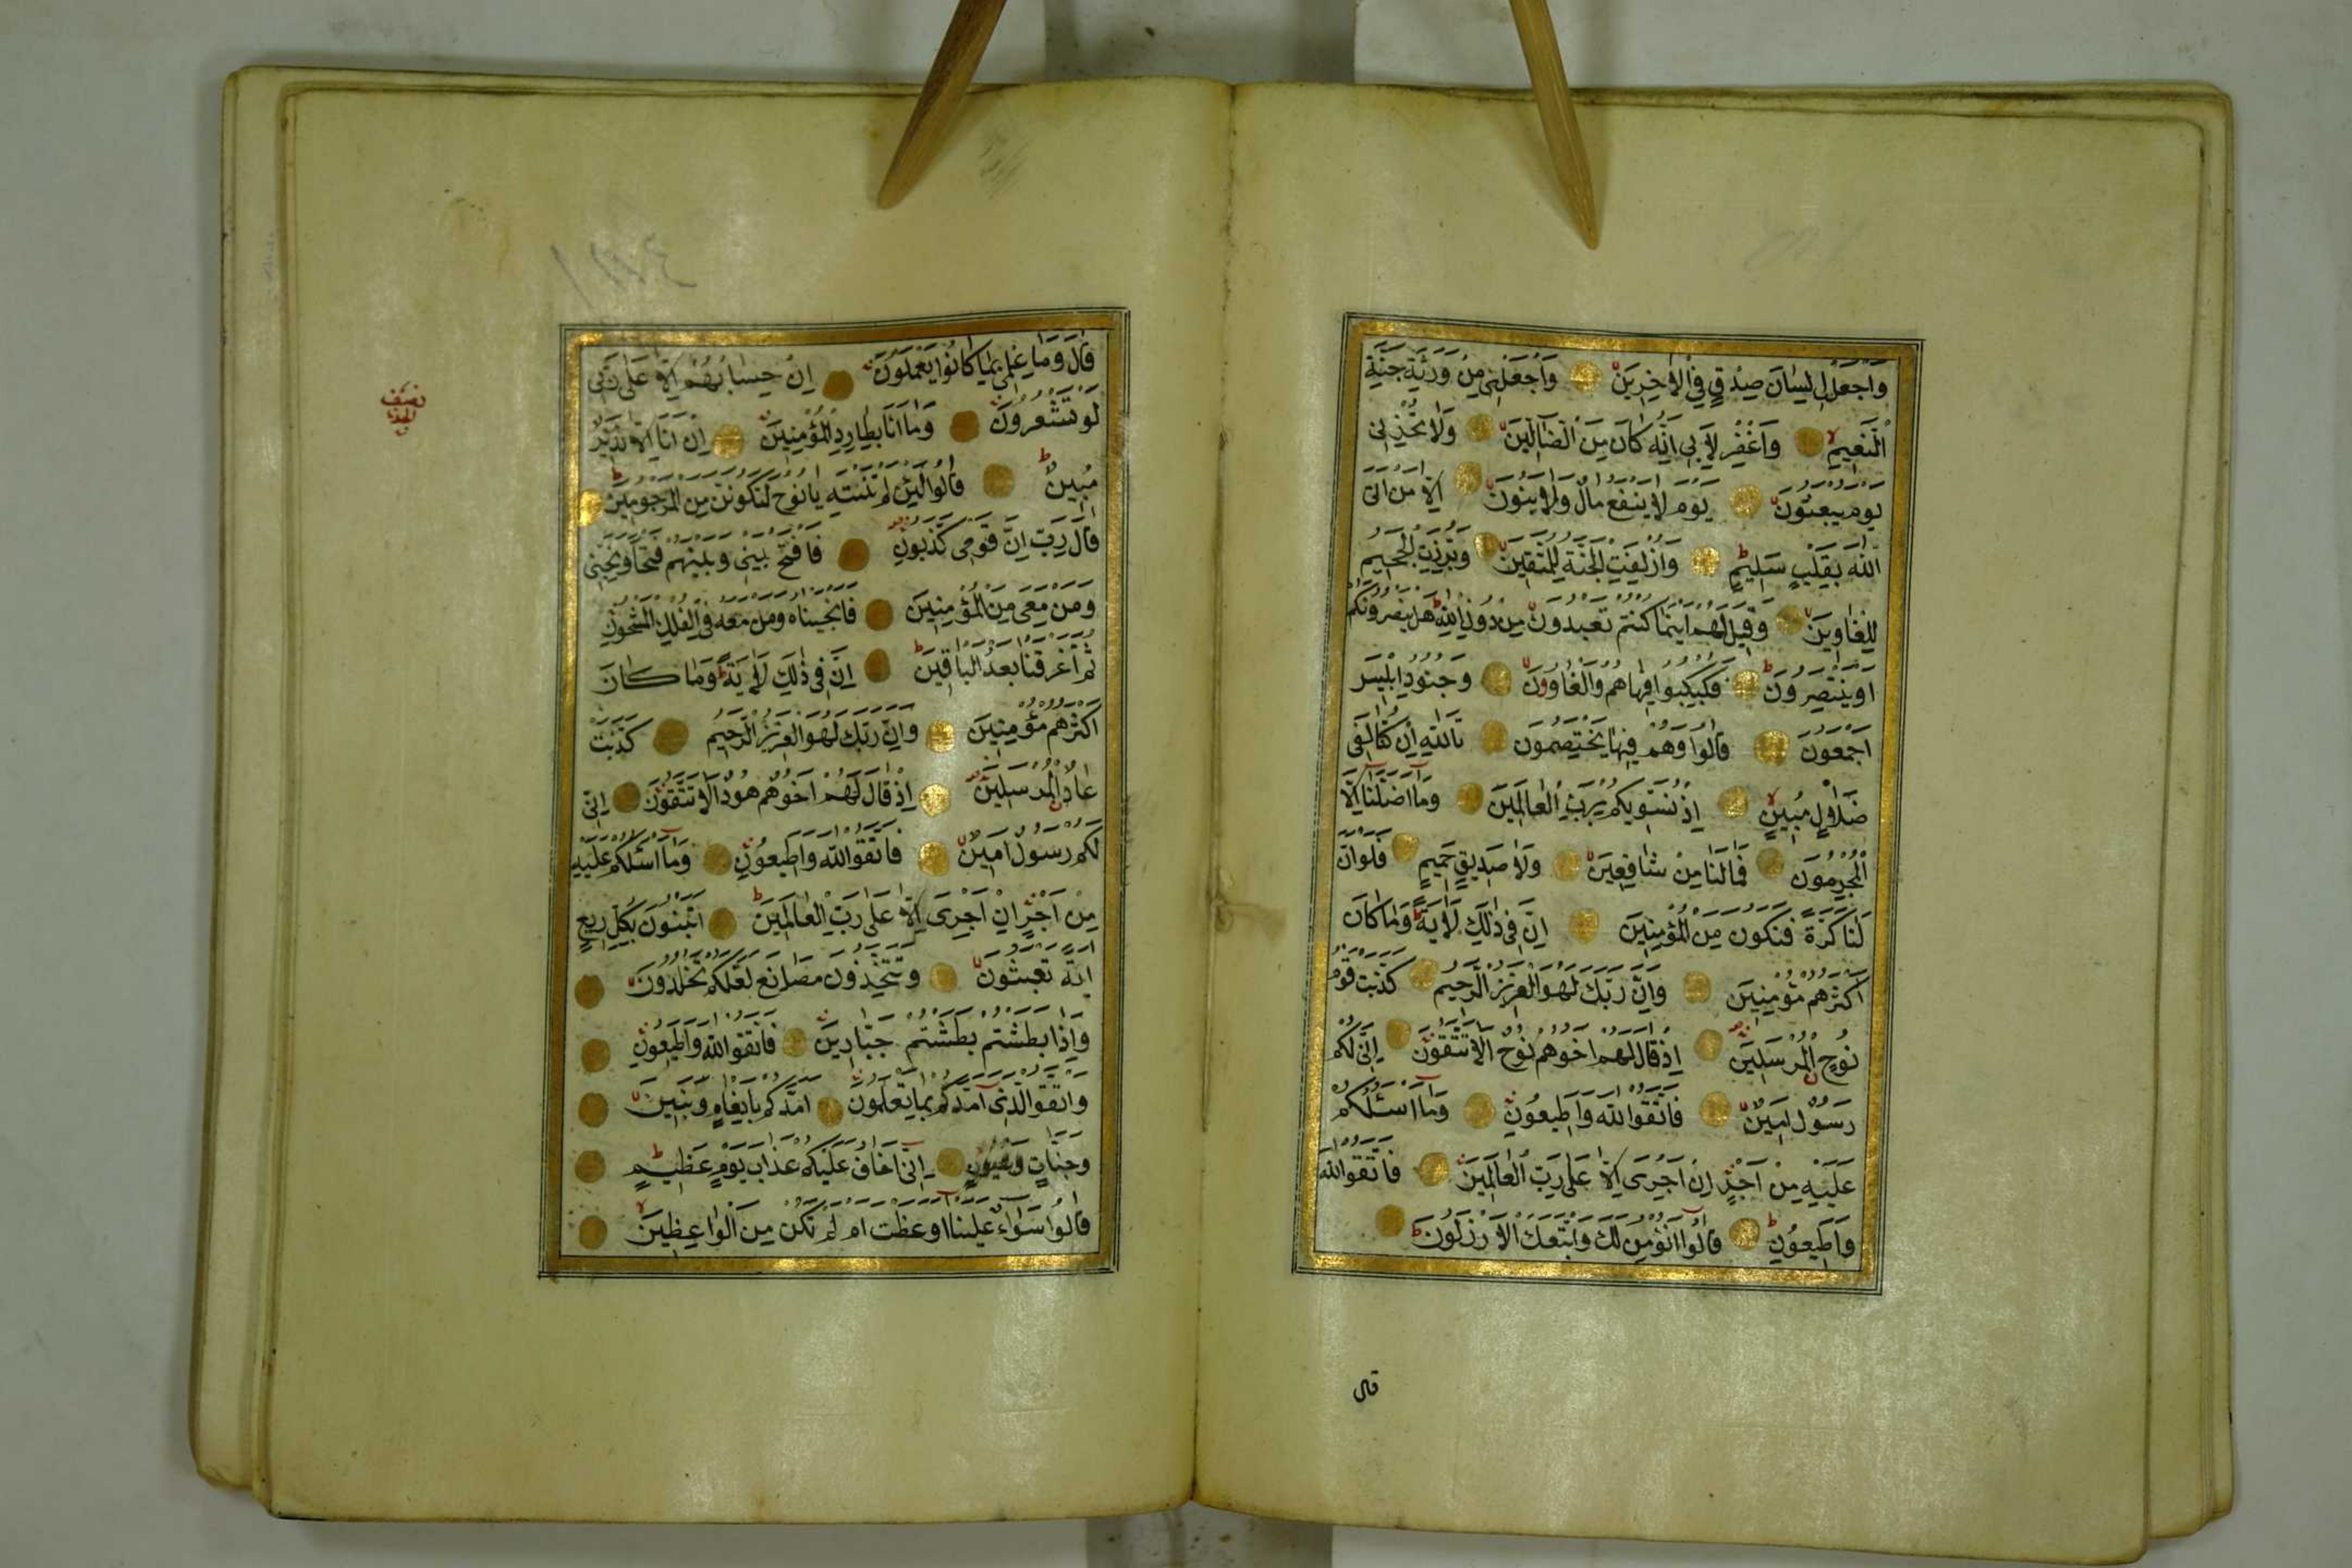 وَاجْعَلْ لِي لِسَانَ صِدْقٍ فِي الْاٰخِرِينَ وَاجْعَلْنِي مِنْ وَرَثَةِ جَنَّةِ
النَّعِيمِ وَاغْفِرْ لِاَبِي اِنَّهُ كَانَ مِنَ الضَّالِّينَ وَلَا تُخْزِنِي
يَوْمَ يُبْعَثُونَ يَوْمَ لَا يَنْفَعُ مَالٌ وَلَا بَنُونَ اِلَّا مَنْ اَتَى
اللّٰهَ بِقَلْبٍ سَلِيمٍ وَاُزْلِفَتِ الْجَنَّةُ لِلْمُتَّقِينَ وَبُرِّزَتِ الْجَحِيمُ
لِلْغَاوِينَ وَقِيلَ لَهُمْ اَيْنَمَا كُنْتُمْ تَعْبُدُونَ مِنْ دُونِ اللّٰهِ هَلْ يَنْصُرُونَكُمْ
اَوْ يَنْتَصِرُونَ فَكُبْكِبُوا فِيهَا هُمْ وَالْغَاوُونَ وَجُنُودُ اِبْلِيسَ
اَجْمَعُونَ قَالُوا وَهُمْ فِيهَا يَخْتَصِمُونَ تَاللّٰهِ اِنْ كُنَّا لَفِي
ضَلَالٍ مُبِينٍ اِذْ نُسَوِّيكُمْ بِرَبِّ الْعَالَمِينَ وَمَا اَضَلَّنَا اِلَّا
الْمُجْرِمُونَ فَمَا لَنَا مِنْ شَافِعِينَ وَلَا صَدِيقٍ حَمِيمٍ فَلَوْ اَنَّ
لَنَا كَرَّةً فَنَكُونَ مِنَ الْمُؤْمِنِينَ اِنَّ فِي ذٰلِكَ لَاٰيَةً وَمَا كَانَ
اَكْثَرُهُمْ مُؤْمِنِينَ وَاِنَّ رَبَّكَ لَهُوَ الْعَزِيزُ الرَّحِيمُ كَذَّبَتْ قَوْمُ
نُوحٍ الْمُرْسَلِينَ اِذْ قَالَ لَهُمْ اَخُوهُمْ نُوحٌ اَلَا تَتَّقُونَ اِنِّي لَكُمْ
رَسُولٌ اَمِينٌ فَاتَّقُوا اللّٰهَ وَاَطِيعُونِ وَمَا اَسْئَلُكُمْ
عَلَيْهِ مِنْ اَجْرٍ اِنْ اَجْرِيَ اِلَّا عَلٰى رَبِّ الْعَالَمِينَ فَاتَّقُوا اللّٰهَ
وَاَطِيعُونِ قَالُوا اَنُؤْمِنُ لَكَ وَاتَّبَعَكَ الْاَرْذَلُونَ
قال
قَالَ وَمَا عِلْمِي بِمَا كَانُوا يَعْمَلُونَ اِنْ حِسَابُهُمْ اِلَّا عَلٰى رَبِّي
لَوْ تَشْعُرُونَ وَمَا اَنَا بِطَارِدِ الْمُؤْمِنِينَ اِنْ اَنَا اِلَّا نَذِيرٌ
مُبِينٌ قَالُوا لَئِنْ لَمْ تَنْتَهِ يَا نُوحُ لَتَكُونَنَّ مِنَ الْمَرْجُومِينَ
قَالَ رَبِّ اِنَّ قَوْمِي كَذَّبُونِ فَافْتَحْ بَيْنِي وَبَيْنَهُمْ فَتْحًا وَنَجِّنِي
وَمَنْ مَعِيَ مِنَ الْمُؤْمِنِينَ فَاَنْجَيْنَاهُ وَمَنْ مَعَهُ فِي الْفُلْكِ الْمَشْحُونِ
ثُمَّ اَغْرَقْنَا بَعْدُ الْبَاقِينَ اِنَّ فِي ذٰلِكَ لَاٰيَةً وَمَا كَانَ
اَكْثَرُهُمْ مُؤْمِنِينَ وَاِنَّ رَبَّكَ لَهُوَ الْعَزِيزُ الرَّحِيمُ كَذَّبَتْ
عَادٌ الْمُرْسَلِينَ اِذْ قَالَ لَهُمْ اَخُوهُمْ هُودٌ اَلَا تَتَّقُونَ اِنِّي
لَكُمْ رَسُولٌ اَمِينٌ فَاتَّقُوا اللّٰهَ وَاَطِيعُونِ وَمَا اَسْئَلُكُمْ عَلَيْهِ
مِنْ اَجْرٍ اِنْ اَجْرِيَ اِلَّا عَلٰى رَبِّ الْعَالَمِينَ اَتَبْنُونَ بِكُلِّ رِيعٍ
اٰيَةً تَعْبَثُونَ وَتَتَّخِذُونَ مَصَانِعَ لَعَلَّكُمْ تَخْلُدُونَ
وَاِذَا بَطَشْتُمْ بَطَشْتُمْ جَبَّارِينَ فَاتَّقُوا اللّٰهَ وَاَطِيعُونِ
وَاتَّقُوا الَّذِي اَمَدَّكُمْ بِمَا تَعْلَمُونَ اَمَدَّكُمْ بِاَنْعَامٍ وَبَنِينَ
وَجَنَّاتٍ وَعُيُونٍ اِنِّي اَخَافُ عَلَيْكُمْ عَذَابَ يَوْمٍ عَظِيمٍ
قَالُوا سَوَاءٌ عَلَيْنَا اَوَعَظْتَ اَمْ لَمْ تَكُنْ مِنَ الْوَاعِظِينَ
نصف